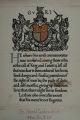 G V R I
He whom this scroll commemorates
was numbered among those who, at the
call of King and Country, left all
that was dear to them, endured hardness,
faced danger, and finally passed out of
the sight of men by the path of duty
and self-sacrifice, giving up their own
lives that others might live in freedom.
Let those who come after see to it
that his name be not forgotten.